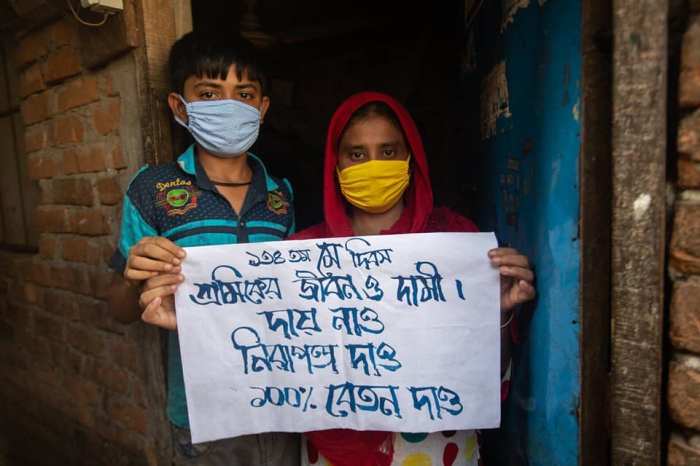 ১৩৪ তম মে দিবস
শ্রমিকের জীবন ও দামী ।
দায় নাও
নিরাপত্তা দাও
১০০% বেতন দাও